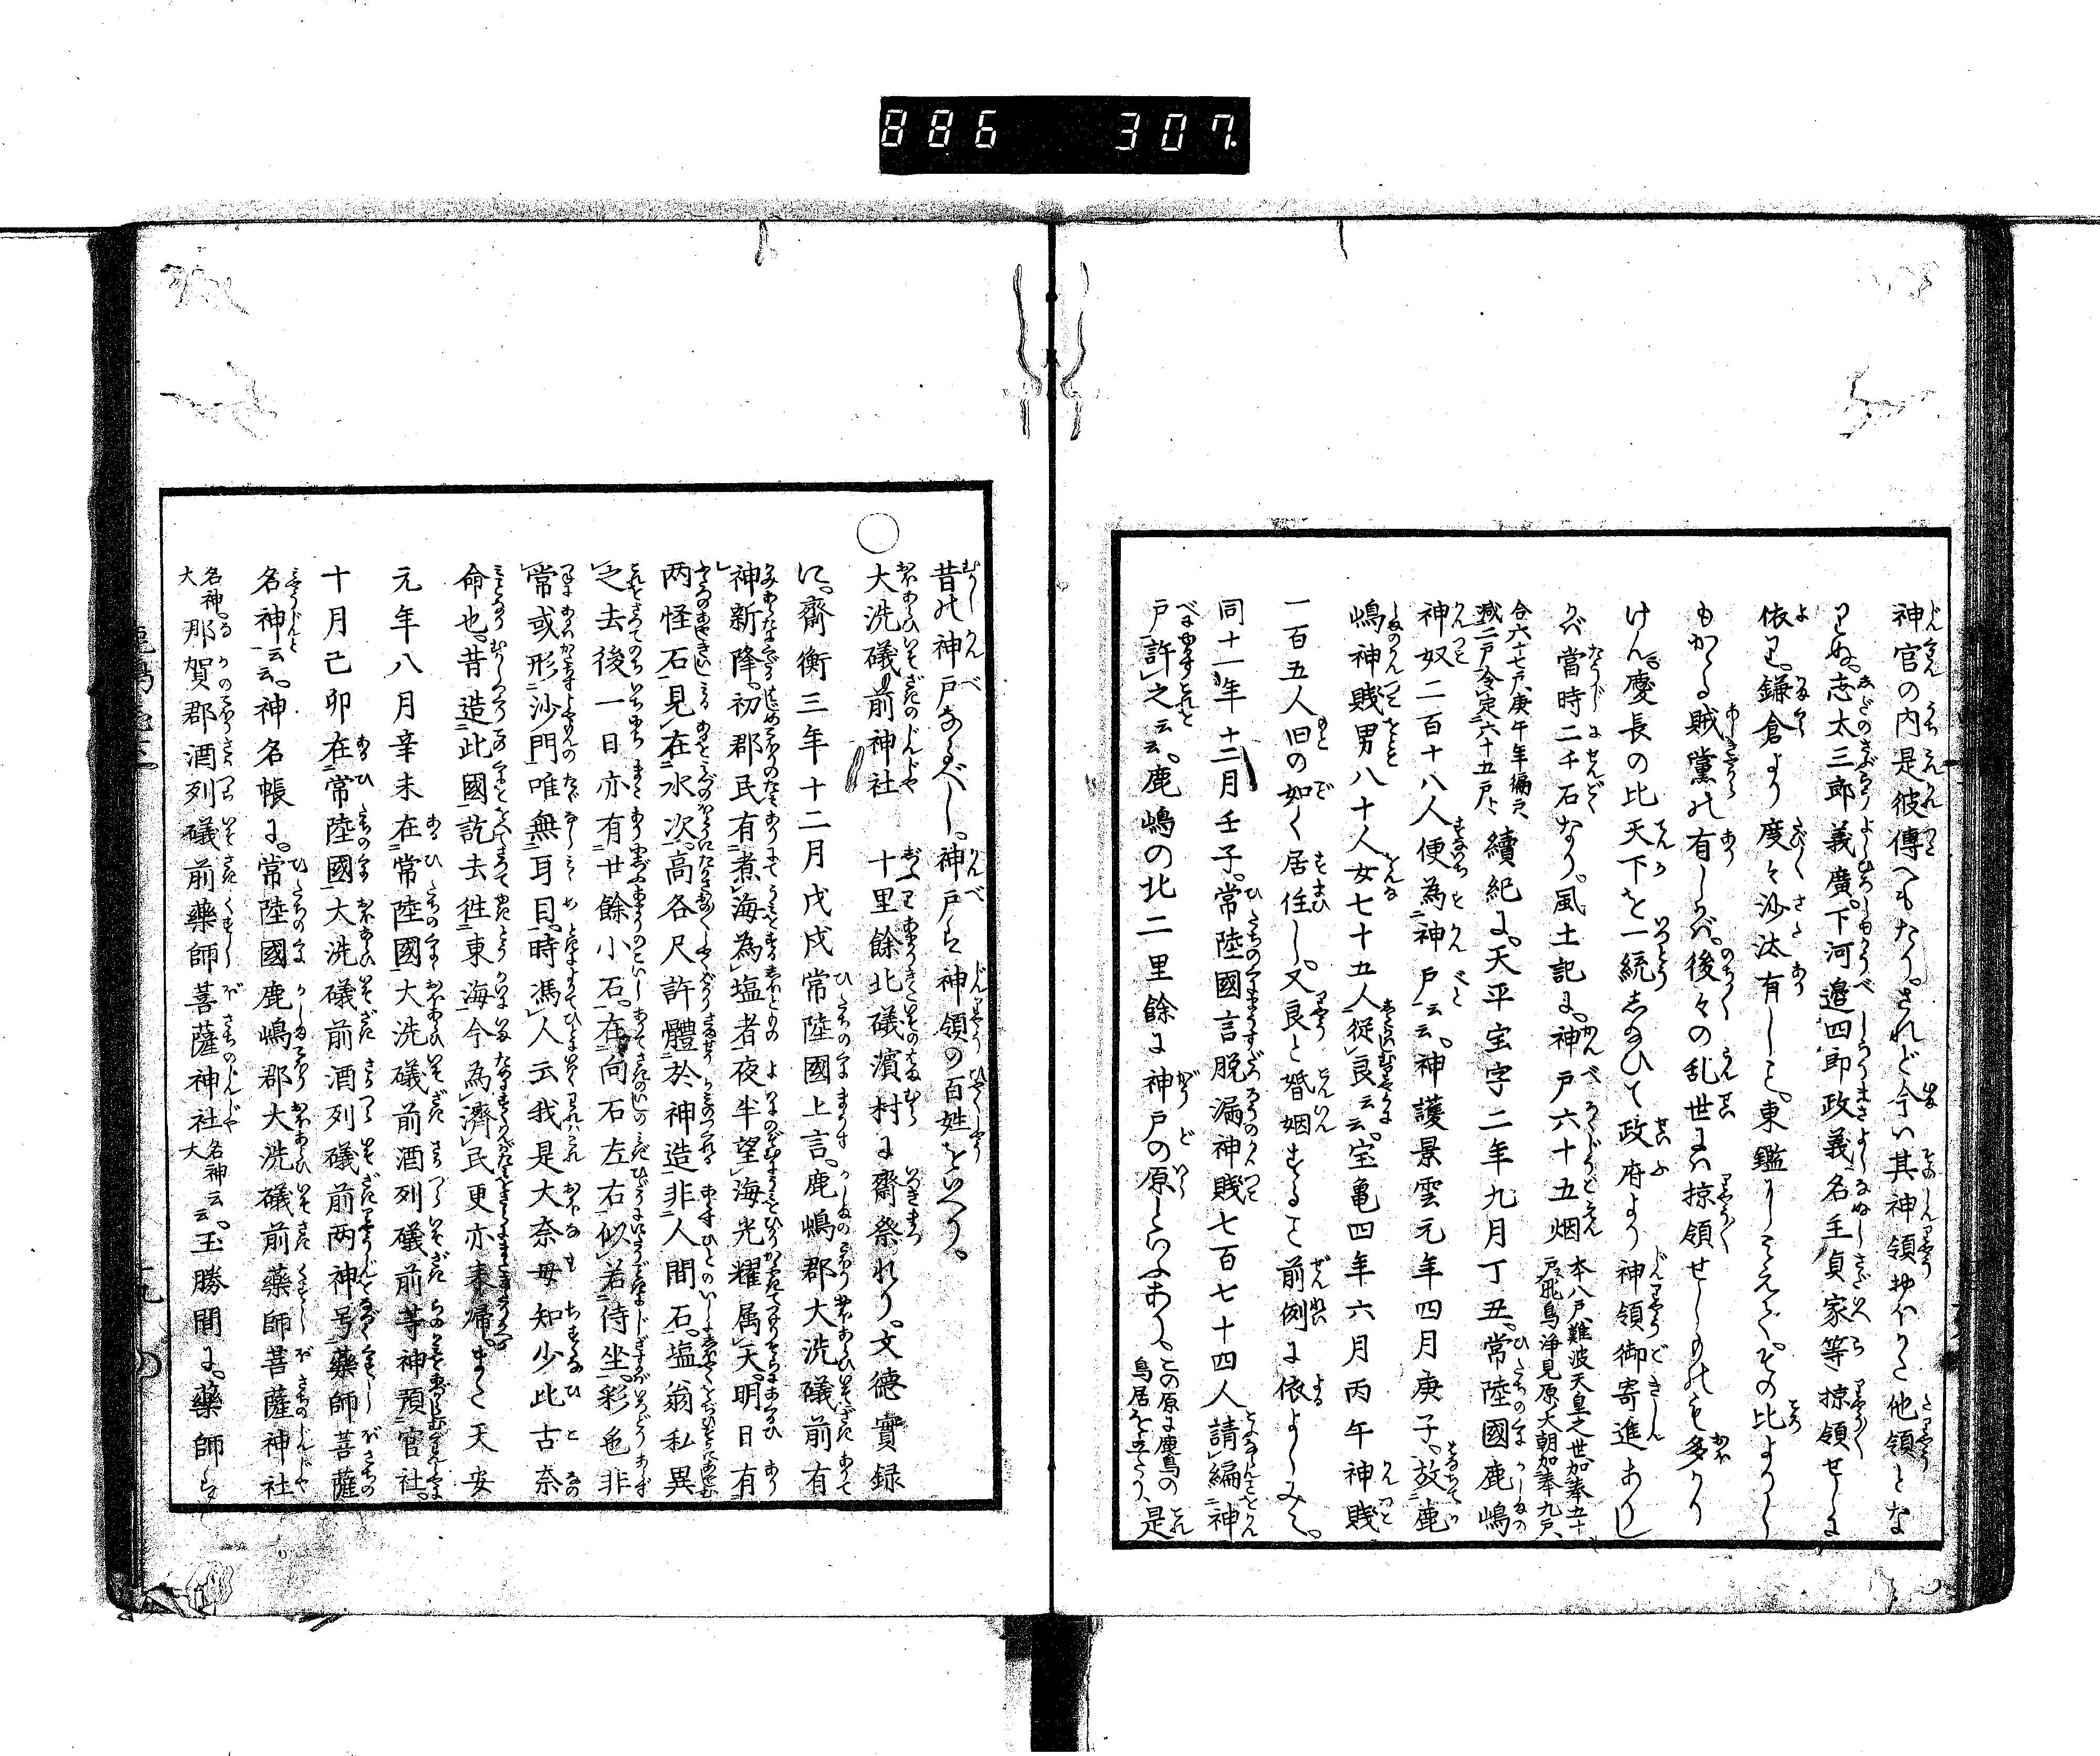 886 307.
神官の内是彼傳へもたり。されど今い其神領おほく他領とな
りぬ。志太三郎義廣。下河邉四郎政義。名主貞家等掠領せしに
依て。鎌倉より度々沙汰有しこと。東鑑にみえて。その比よりし
もかゝる賊黨の有しかバ。後々の乱世にハ掠領せしもの多かり
けん。慶長の比天下を一統したひて政府より神領御寄進ありし
かバ當時二千石なり。風土記に。神戸六十五烟 本八戸、難波天皇之世、加奉五十戸、飛鳥浄見原大朝、加奉九戸、
合六十七戸、庚午年編戸、減二戸、令定六十五戸、 續紀に。天平宝字二年九月丁丑。常陸國鹿嶋
神奴二百十八人便為神戸云云。神護景雲元年四月庚子。放鹿
嶋神賤男八十人女七十五人従良云云。宝亀四年六月丙午神賤
一百五人旧の如く居住し。又良と婚姻することを前例に依よしみゆ。
同十一年十二月壬子。常陸國言脱漏神賤七百七十四人請編神
戸許之云云。鹿嶋の北二里餘に神戸の原といふあり。この原に鹿嶋の鳥居を立たり、是
昔の神戸なるべし。神戸とは神領の百姓をいへり。
○大洗礒前神社 十里餘北礒濱村に齋祭れり。文徳實録
に。齋衡三年十二月戊戌常陸國上言。鹿嶋郡大洗礒前有
神新降。初郡民有煮海為塩者夜半望海光耀属天。明日有
両怪石見在水次。高各尺許體於神造非人間石。塩翁私異
之去後一日亦有廿餘小石。在向石左右似若侍坐。彩色非
常或形沙門唯無耳目。時馮人云我是大奈母知少比古奈
命也。昔造此國訖去徃東海今為濟民更亦来帰。また天安
元年八月辛未在常陸國大洗礒前酒列礒前等神預官社。
十月己卯在常陸國大洗礒前酒列礒前両神号藥師菩薩
名神云云。神名帳に。常陸國鹿嶋郡大洗礒前藥師菩薩神社
名神大。那賀郡酒列礒前藥師菩薩神社名神大云云。玉勝間に。藥師と